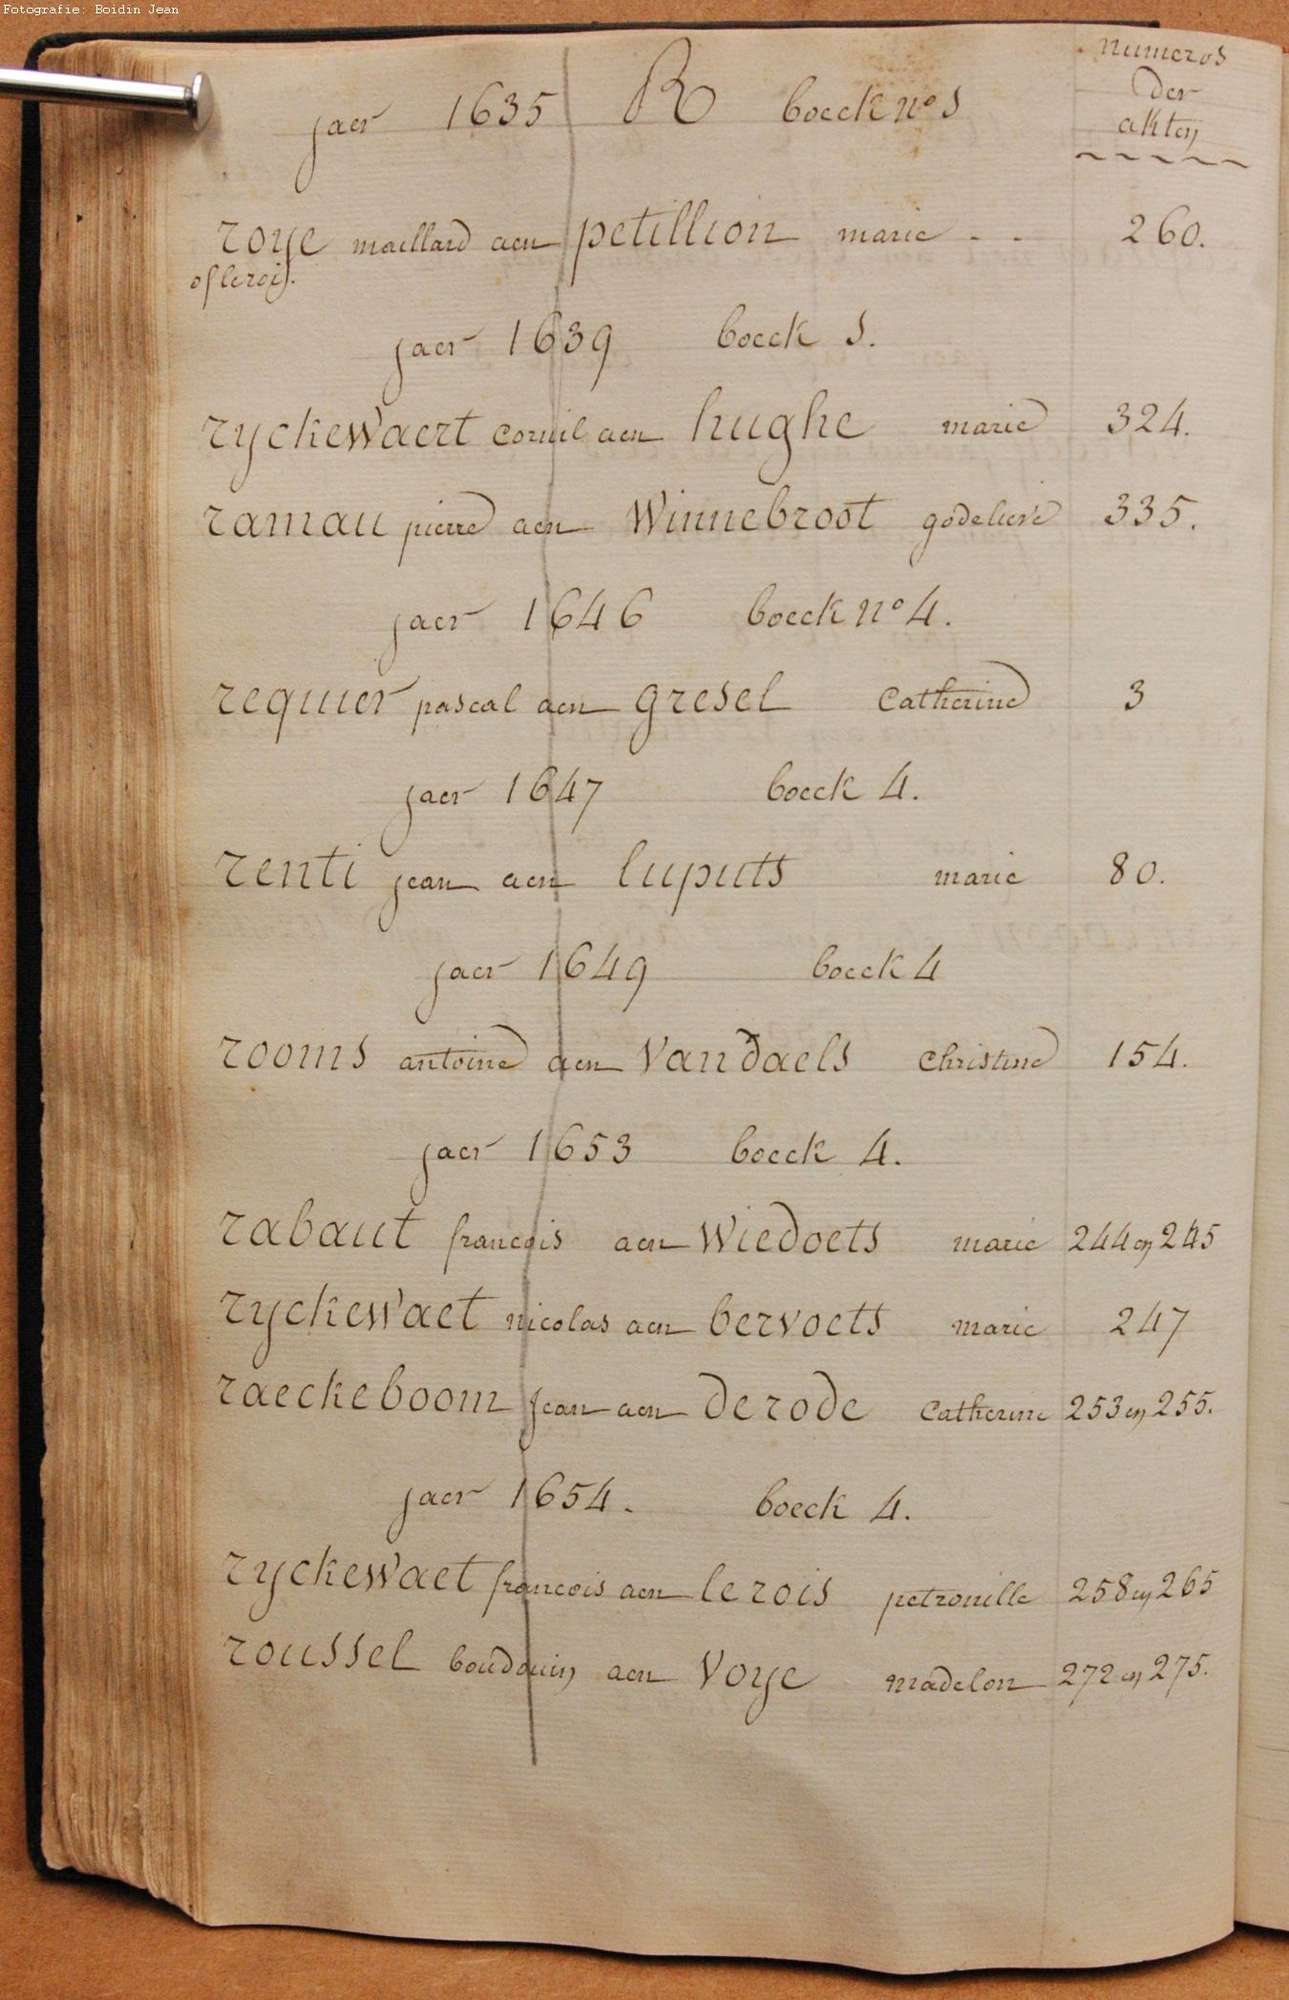 Fotografie: Boidin Jean
numeros
der
akten
jaer 1635 R boeck n° 1
roye maillard aen petillion marie - - 260.
of leroij.
jaer 1639 boeck 1.
ryckewaert corniil aen hughe marie 324.
ramau pierre aen Winnebroot godelieve 335.
jaer 1646 boeck n° 4.
requier pascal aen gresel Catherine 3
jaer 1647 boeck 4.
renti jean aen luputs marie 80.
jaer 1649 boeck 4
rooms antoine aen Vandaels Christine 154.
jaer 1653 boeck 4.
rabaut francois aen Wiedoets marie 244 en 245
ryckewaet nicolas aen bervoets marie 247
raeckeboom jean aen De rode Catherine 253 en 255.
jaer 1654. boeck 4.
ryckewaet francois aen le rois petronille 258 en 265
roussel boudouin aen Voye madelon 272 en 275.